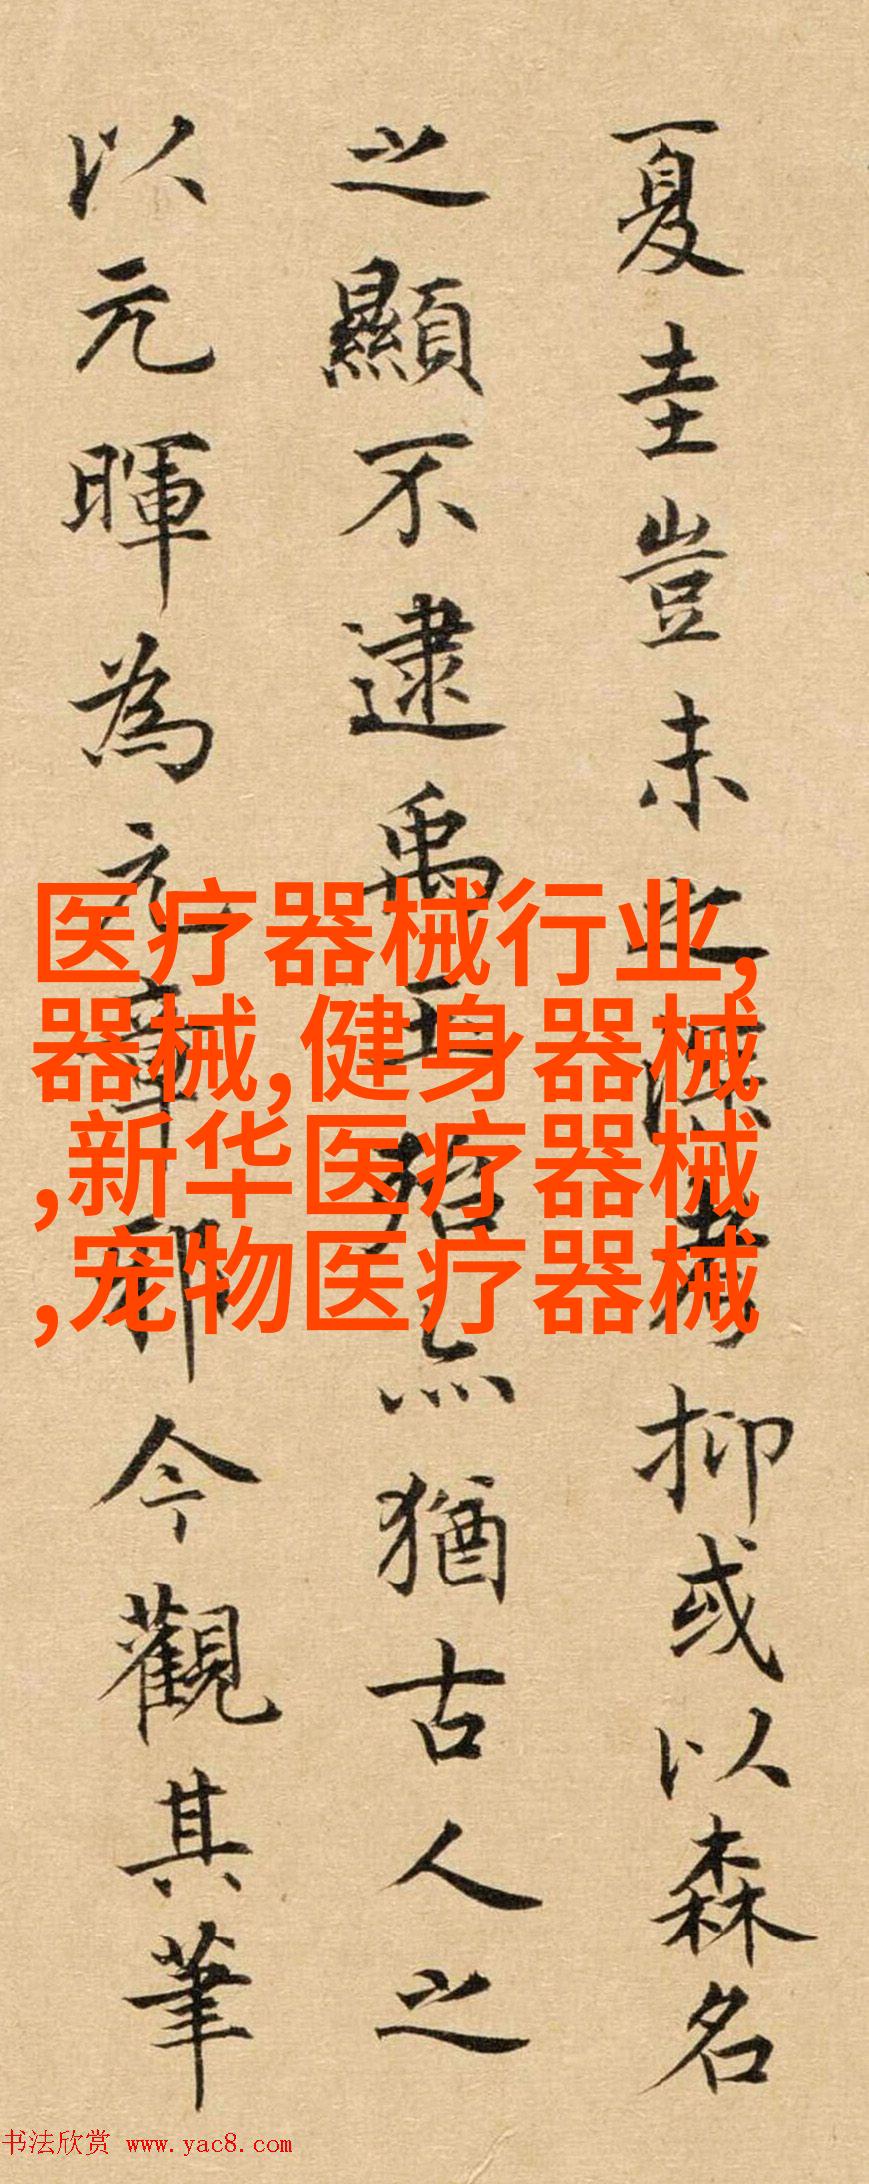 夏圭豈未之深考抑或以森名
之顯不逮禹玉殆亦猶古人之
以元暉為元章耶今觀其筆
医疗器械行业,
器械,健身器械
,新华医疗器械
,宠物医疗器械
书法欣赏 www.yac8.com